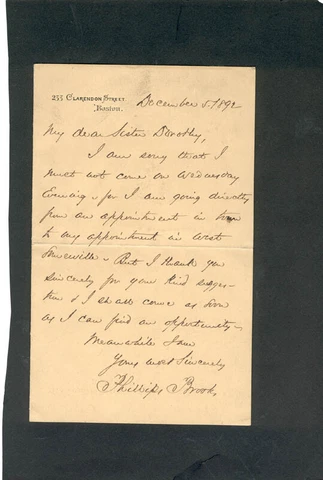 233 Clarendon Street.
Boston.
December 5. 1892
My dear Sister Dorothy,
I am sorry that I
must not come on Wednesday
Evening - for I am going directly
from an appointment in town
to my appointment in West
Somerville - But I thank you
sincerely for your kind sugges-
tion & I shall come as soon
as I can find an opportunity -
Meanwhile I am
Yours most sincerely
Phillips Brooks